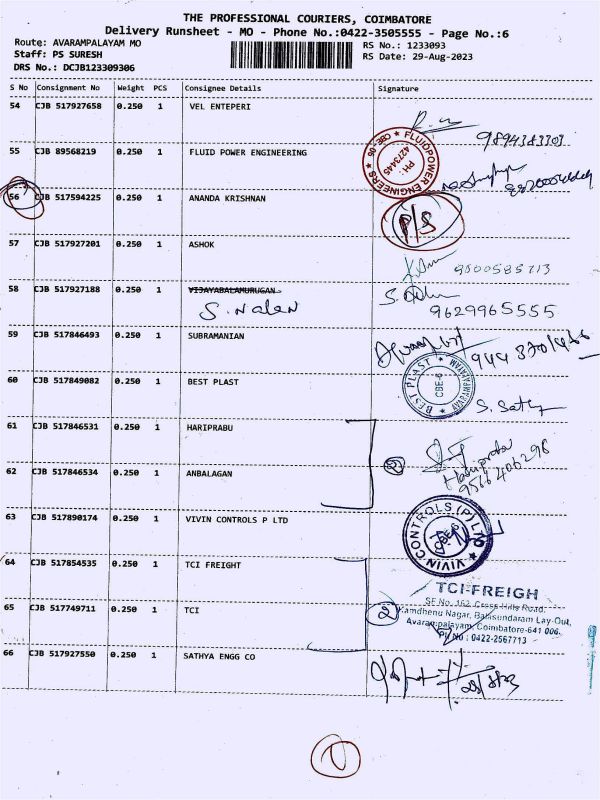 THE PROFESSIONAL COURIERS, COIMBATORE
Delivery Runsheet - MO - Phone No.:0422-3505555 - Page No.:6
Route: AVARAMPALAYAM MO
RS No.: 1233093
Staff: PS SURESH
RS Date: 29-Aug-2023
DRS No.: DCJB123309306
S No Consignment No Weight PCS Consignee Details Signature
54 CJB 517927658 0.250 1 VEL ENTEPERI
9894383303
55 CJB 89568219 0.250 1 FLUID POWER ENGINEERING
FLUIDPOWER ENGINEERS ★ CBE-06 ★
PH: 4273445
56 CJB 517594225 0.250 1 ANANDA KRISHNAN
P/S
57 CJB 517927201 0.250 1 ASHOK
9500585713
58 CJB 517927188 0.250 1 VIJAYABALAMURUGAN
S. Nalan
9629965555
59 CJB 517846493 0.250 1 SUBRAMANIAN
60 CJB 517849082 0.250 1 BEST PLAST
★ BEST PLAST ★ AVARAMPALAYAM
CBE-6
S. Sathy
61 CJB 517846531 0.250 1 HARIPRABU
2
Hariprabu
9566406298
62 CJB 517846534 0.250 1 ANBALAGAN
63 CJB 517890174 0.250 1 VIVIN CONTROLS P LTD
★ VIVIN CONTROLS (P) LTD
CBE-6
64 CJB 517854535 0.250 1 TCI FREIGHT
TCI-FREIGH
SF No. 162, Cross Hills Road,
Kamdhenu Nagar, Balasundaram Lay-Out,
Avarampalayam, Coimbatore-641 006.
Ph No : 0422-2567713
65 CJB 517749711 0.250 1 TCI
2
66 CJB 517927550 0.250 1 SATHYA ENGG CO
29/8/23
1